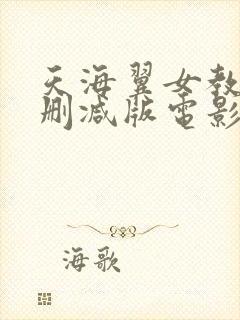 天海翼女教
删减版电影
海歌